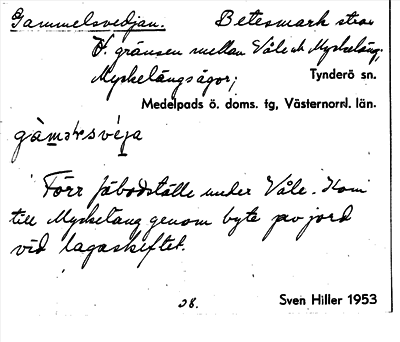 Gammelsvedjan. Betesmark strax
V. gränsen mellan Våle och Myckeläng;
Myckelängs ägor; Tynderö sn.
Medelpads ö. doms. tg, Västernorrl. län.
Förr fäbodställe under Våle. Kom
till Myckeläng genom byte av jord
vid lagaskiftet.
08. Sven Hiller 1953